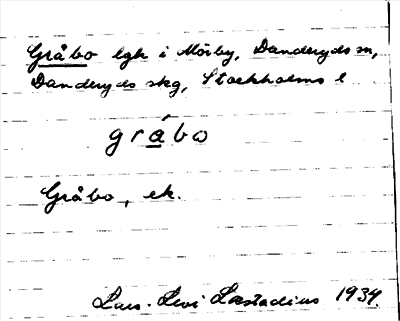 Gråbo lgh i Mörby, Danderyds sn,
Danderyds skg, Stockholms l
gråbo
Gråbo, ek.
Lars-Levi Læstadius 1934